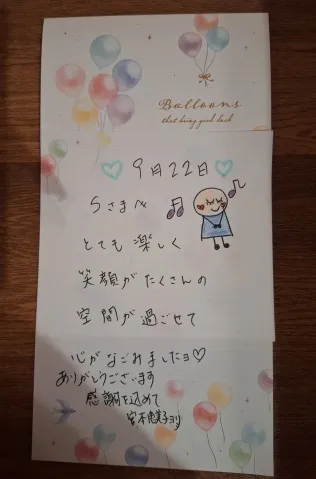 Balloons
that bring good luck
9月22日
Sさまへ
とても楽しく
笑顔がたくさんの
空間が過ごせて
心がなごみましたヨ♡
ありがとうございます
感謝を込めて
宮本恵子より